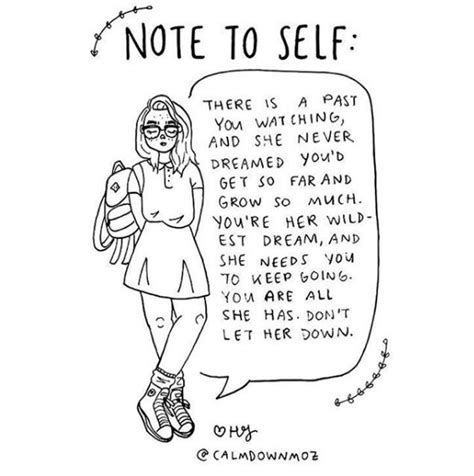 NOTE TO SELF:
THERE IS A PAST
YOU WATCHING,
AND SHE NEVER
DREAMED YOU'D
GET SO FAR AND
GROW SO MUCH.
YOU'RE HER WILD-
EST DREAM, AND
SHE NEEDS YOU
TO KEEP GOING.
YOU ARE ALL
SHE HAS. DON'T
LET HER DOWN.
@CALMDOWNMOZ